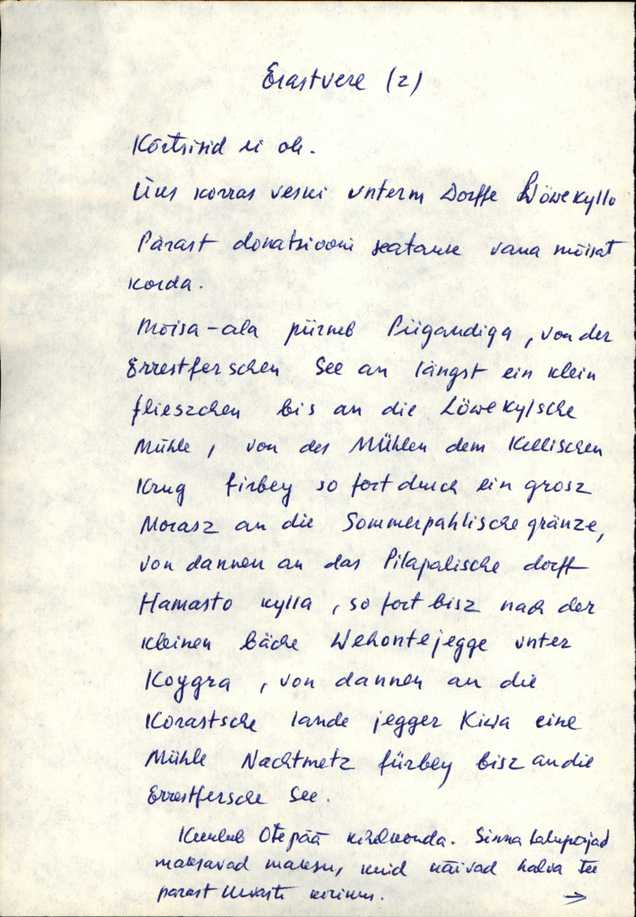 Erastvere (2)
Kõrtsisid ei ole.
Üks korras veski unterm Dorffe Löwekyllo
Pärast donatsiooni seatakse vana mõisat
korda.
Mõisa-ala piirneb Piigandiga, von der
Errestferschen See an längst ein klein
flieszchen bis an die Löwekylsche
Mühle, von der Mühlen dem Kellischen
Krug fürbey so fort durch ein grosz
Morasz an die Sommerpahlische gränze,
von dannen an das Pilapalische dorff
Hamasto kylla, so fort bisz nach der
kleinen bäche Wehontejegge unter
Koygra, von dannen an die
Korastsche lande jegger Kiwa eine
Mühle Nachtmetz fürbey bisz an die
Errestfersche See.
Kuulub Otepää kihelkonda. Sinna talupojad
maksavad maksu, kuid käivad halva tee
pärast Urvaste kirikus.
→